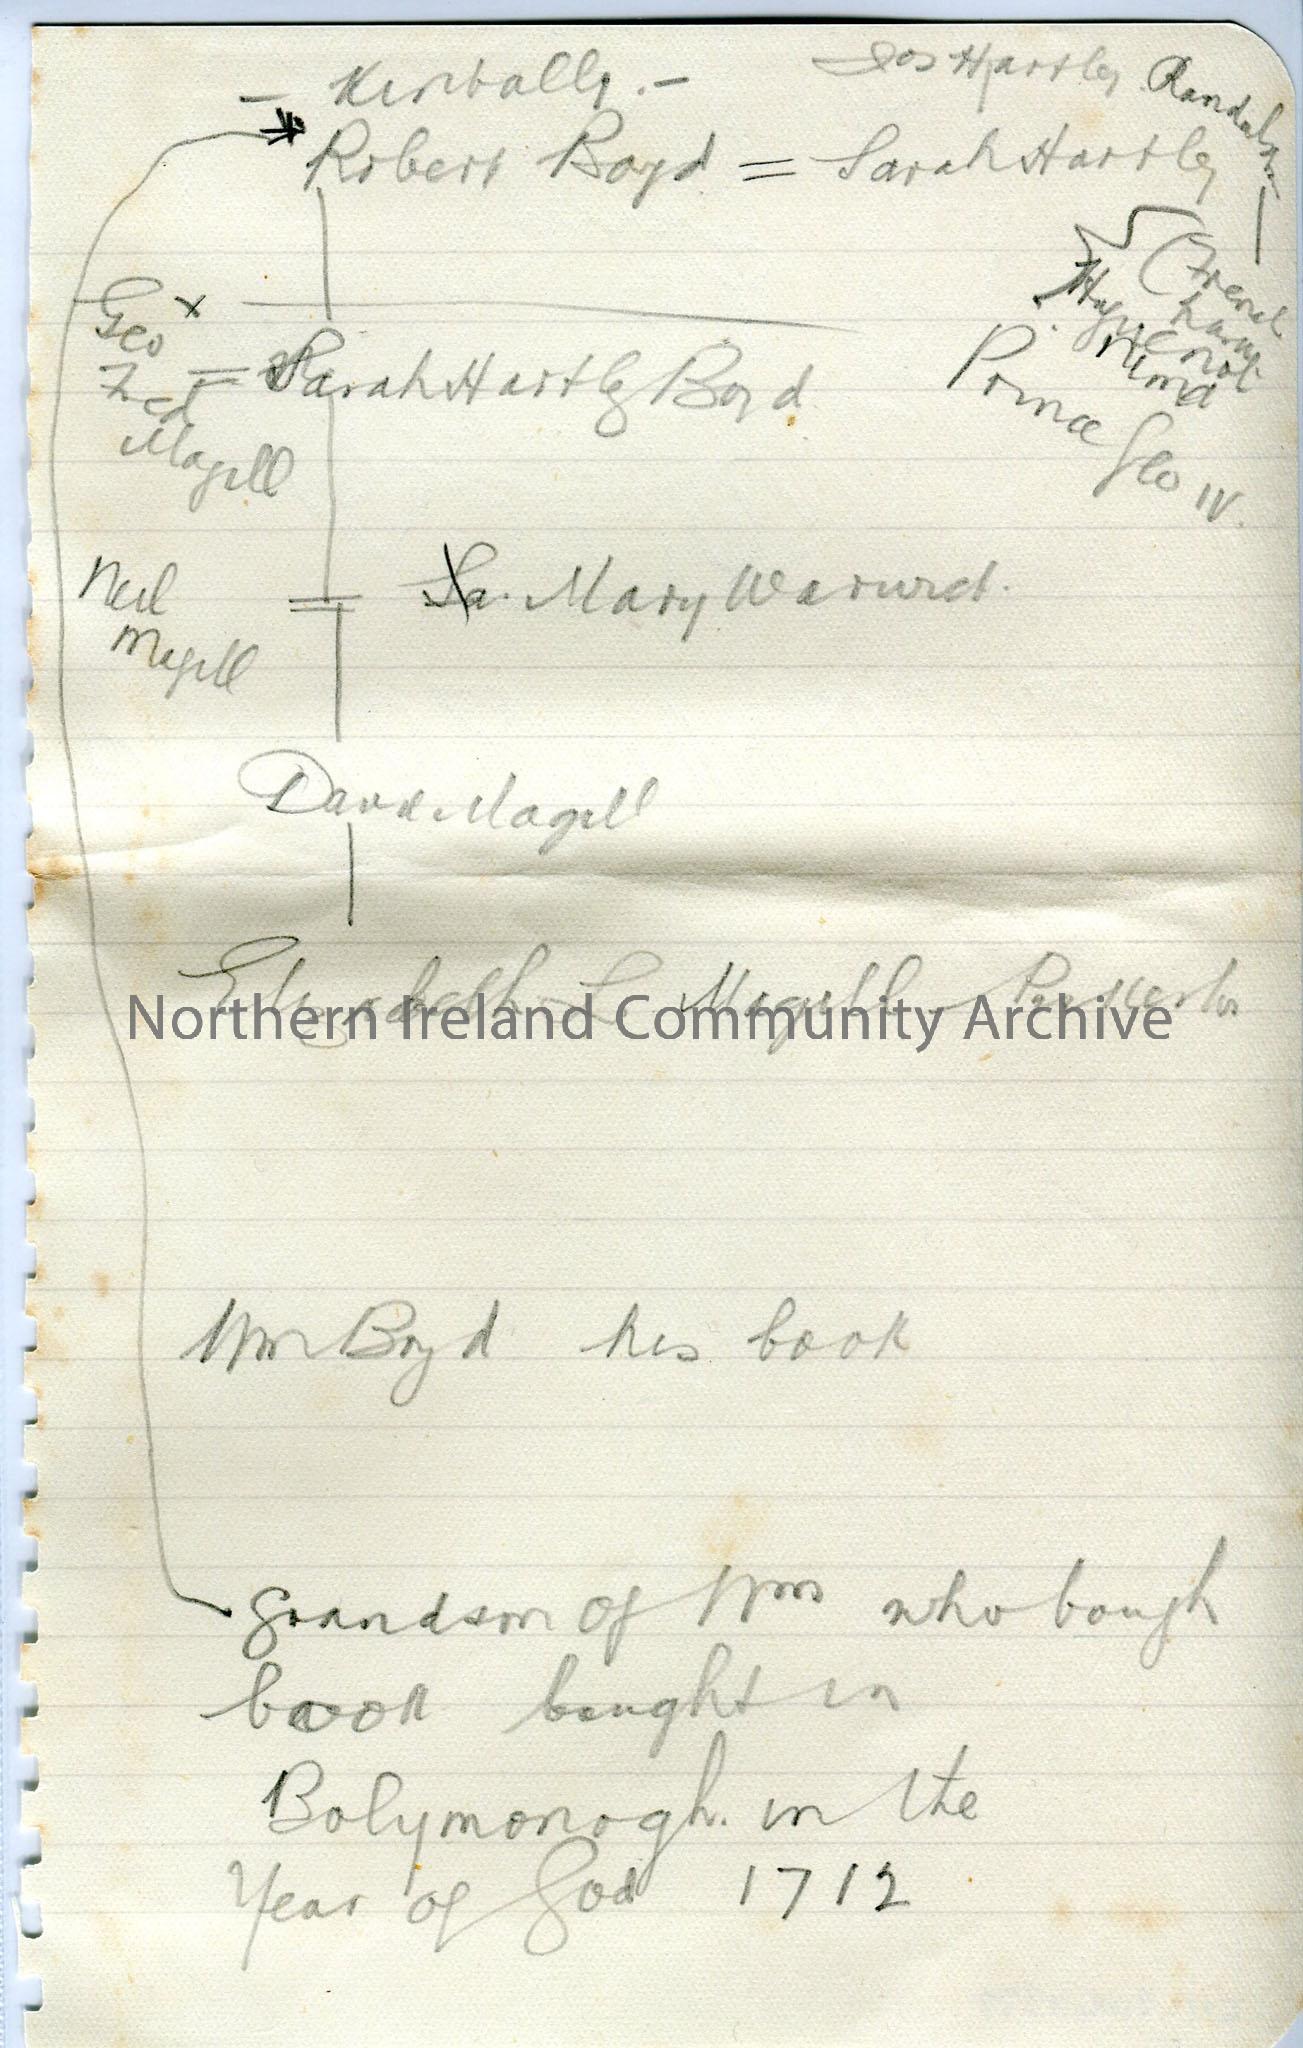 - Kirkally. -
Jos Hartley Randal
Robert Boyd = Sarah Hartley
(French
Huguenot
Prince Geo IV.
Geo x
Fred = Sarah Hartley Boyd
Magill
Neil = Sa. Mary Warwick.
Magill
David Magill
Elizabeth L Magill
Northern Ireland Community Archive
Wm Boyd his book
grandson of Wm who bough
book bought in
Bolymonogh. in the
Year of God 1712